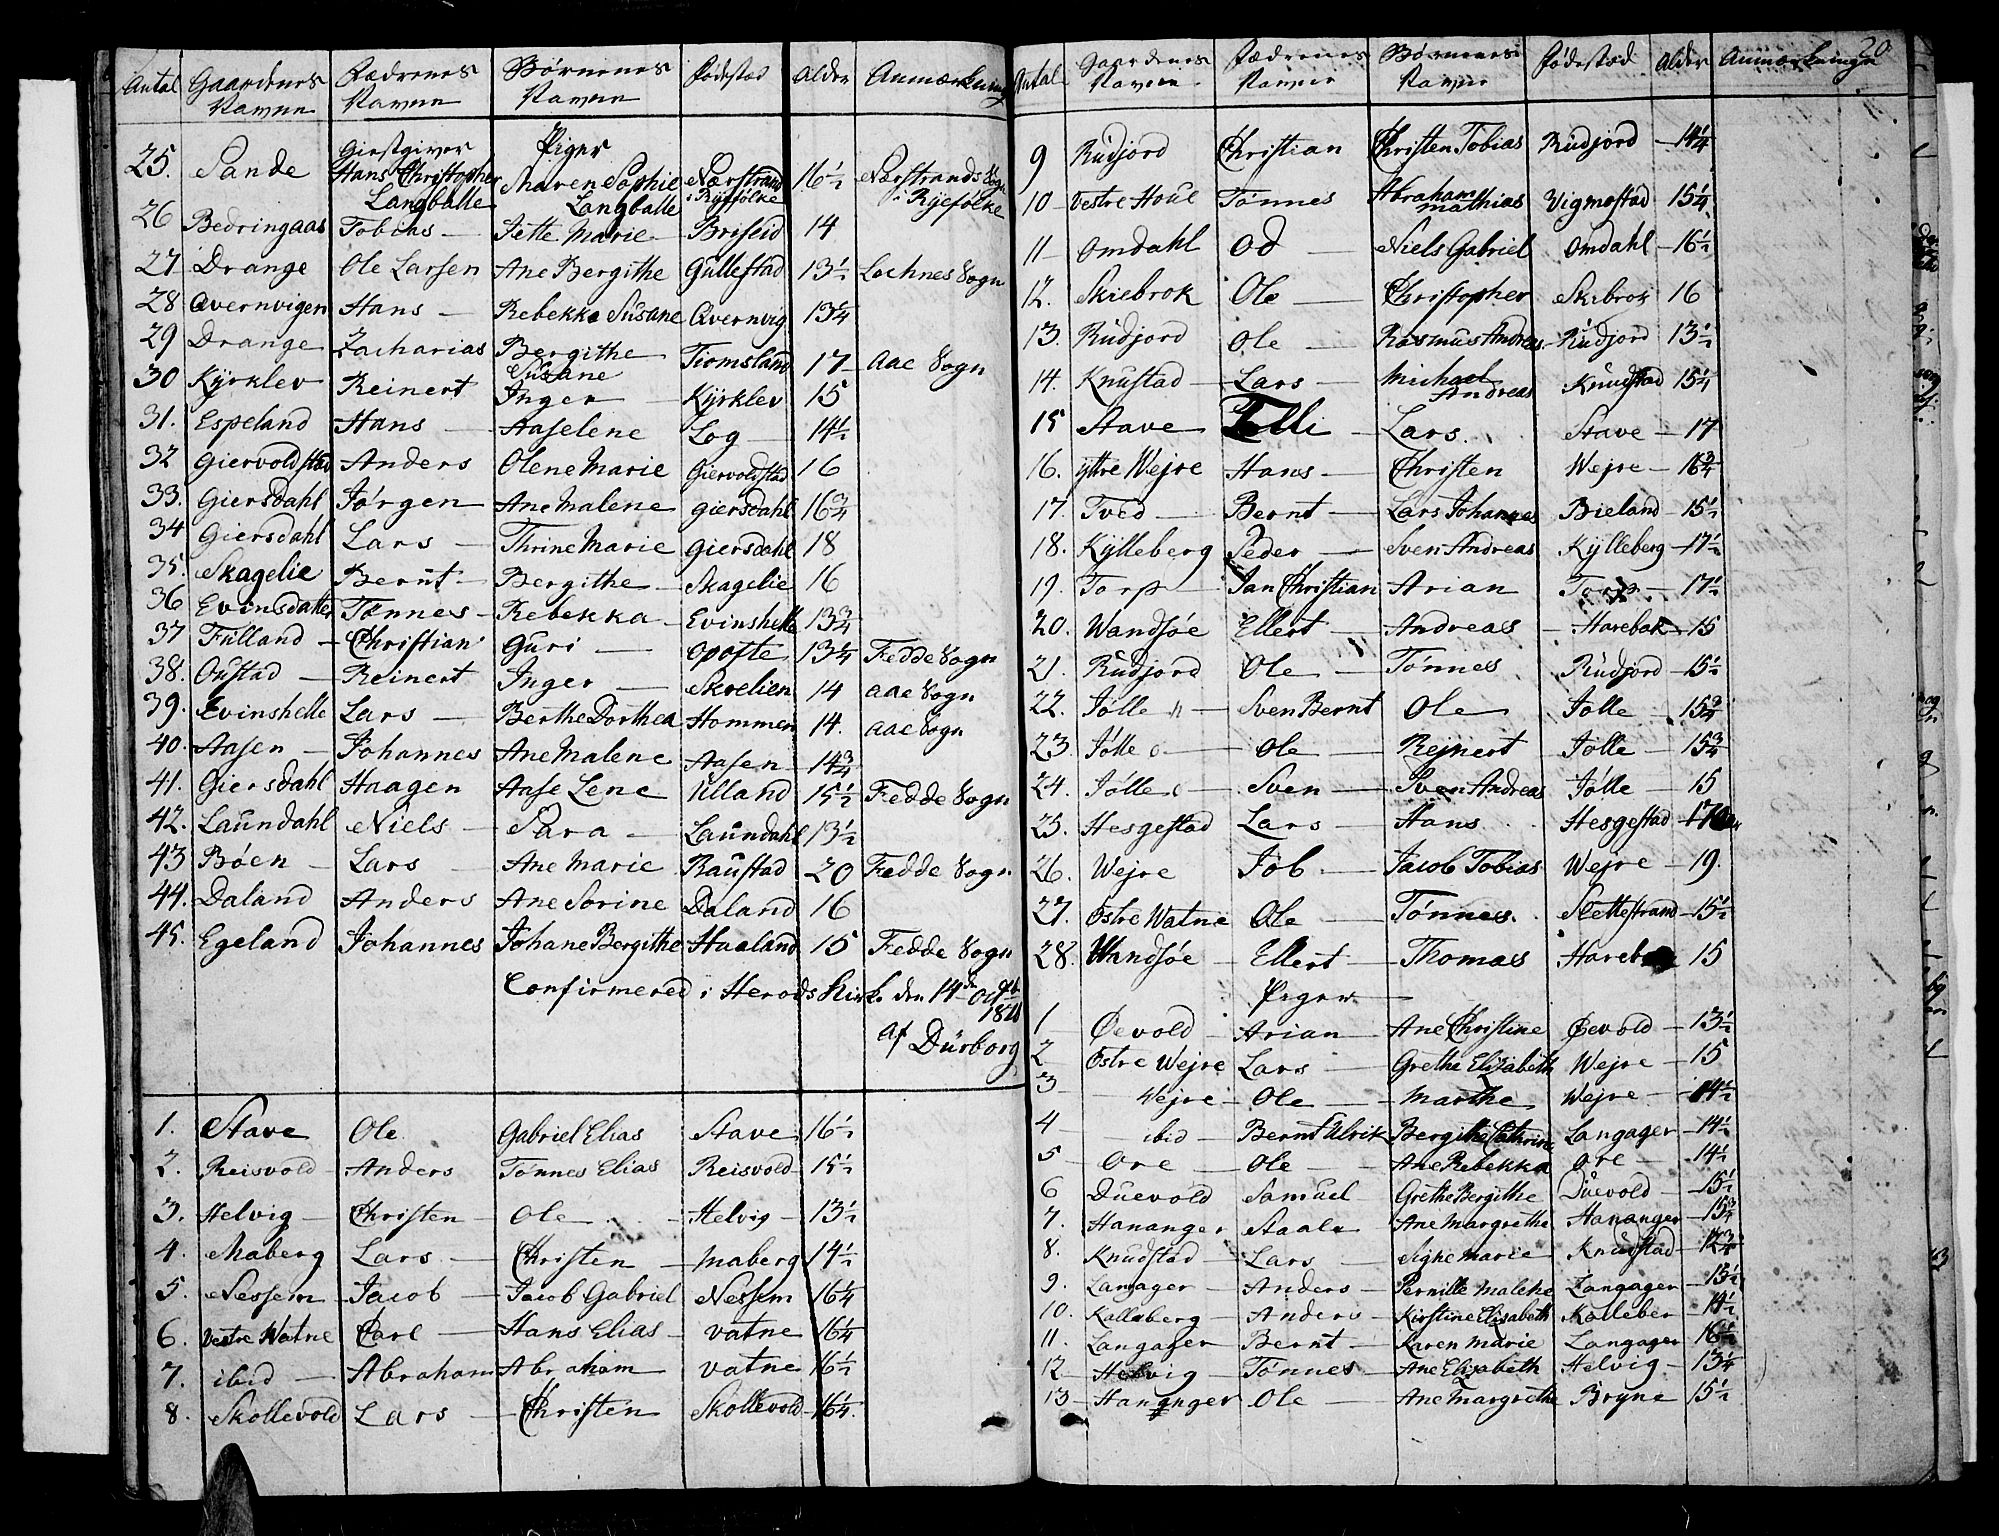 Antal Gaardenes Navne Fædrenes Navne Børnenes Navne Fødestæd Alder Anmærkning
Piger
25. Sande Giestgiver Hans Christopher Langballe Maren Sophie Langballe Nærstrand i Ryefølke 16½ Nærstrands Sogn i Ryefølke
26 Bedringaas Tobias — Jette Marie — Briseid 14
27 Drange Ole Larsen Ane Bergithe Gullestad 13½ Lochnes Sogn
28 Qvernvigen Hans — Rebekka Susane Qvernvig 13¼
29 Drange Zacharias Bergithe Susane Tiomsland 17 — Aae Sogn
30 Kÿrklev Reinert Inger — Kÿrklev 15
31. Espeland Hans — Aaselene Log — 14½
32 Giervoldstad Anders Olene Marie Giervoldstad 16
33. Giersdahl Jørgen — Ane Malene Giersdahl 16¾
34 Giersdahl Lars — Thrine Marie Giersdahl 18
35. Skagelie Bernt — Bergithe — Skagelie 16
36 Tønnes — Rebekka — Evinshelle 13¾
37 Fulland — Christian Guri — Opofte 13¼ Fedde Sogn
38. Oustad — Reinert Inger — Skrelien 14 Aae Sogn
39. Evinshelle Lars — Berthe Dorthea Hommen 14. Aae Sogn
40. Aasen — Johannes Ane Malene Aasen 14¾
41. Giersdahl Haagen Aase Lene Ulland 15½ Fedde Sogn
42. Laundahl Niels — Sara — Laundahl 13½
43 Bøen — Lars — Ane Marie Raustad 20 Fedde Sogn
44. Daland Anders Ane Sorine Daland 16
45. Egeland Johannes Johane Bergithe Haaland 15 Fedde Sogn
Confirmered i Herods Kirk. den 14de
af Dürborg
1. Stave Ole Gabriel Elias Stave 16½
2. Reisvold — Anders Tønnes Elias Reisvold 15½
3. Helvig — Christen — Ole — Helvig — 13½
4. Maberg Lars — Christen — Maberg 14½
5. Nessem — Jacob — Jacob Gabriel Nessem 16¼
6. Vestre Watne Carl — Hans Elias — Vatne 16¼
7. ibid — Abraham Abraham Vatne 16½
8. Skollevold Lars — Christen Skollevold — 16¼.
20
Antal Gaardenes Navne Fædrenes Navne Børnenes Navne Fødestæd Alder Anmærkninger
9 Rudjord Christian Christen Tobias Rudjord — 14¼
10 — Vestre Houe Tønnes Abraham Mathias Vigmostad 15¼
11 — Omdahl Od — Niels Gabriel Omdahl — 16½
12. Skiebrok Ole — Christopher Skibrok 16
13. Rudjord Ole — Rasmus Andreas — Rudjord 13½
14. Knustad — Lars — Michael Andreas Knudstad 15¼
15 Stave Telli — Lars. Stave — 17
16. ÿttre Wejre Hans — Christen Wejre — 16¾
17. Tved — Bernt — Lars Johannes Bieland — 15½
18. Kÿlleberg Peder — Sven Andreas Kÿlleberg — 17½
19. Torp — Jan Christian Arian Torp — 17½
20. Wandsøe Ellert — Andreas — Harebak — 15
21. Rudjord Ole — Tønnes Rudjord — 15½
22. Jølle Sven Bernt Ole Jolle — 15¾
23 Jolle — Ole Rejnert Jolle — 15¾
24. Jølle — Sven — Sven Andreas Jølle — 15
25. Hesgestad Lars — Hans Hesgestad
26. Wejre Job — Jacob Tobias Wejre — 19.
27. Østre Watne Ole — Tønnes. Slettestrand — 15½
28. Wandsøe — Ellert — Thomas 15
Piger —
1 — Øevold — Arian — Ane Christine Øevold — 13½
2 — Østre Wejre Lars — Grethe Elizabeth Wejre — 15
3 — Wejre — Ole — Marthe Wejre — 14½
4 — ibid — Bernt Ulrik Bergithe Cathrine Langager — 14½
5 — Ore — Ole — Ane Rebekka Ore — 14½
6 Duevold Samuel — Grethe Bergithe Duevold — 15½
7. Hananger Staale Ane Margrethe Hananger — 15¾
8. Knudstad — Lars — Signe Marie Knudstad
9. Langager — Anders — Pernille Malene Langager — 15½
10. Kalleberg — Anders — Kirstine Elisabeth Kalleber 14½
11. Langager — Bernt — Karen Marie Langager —
12 — Helvig — Tønnes — Ane Elizabeth Helvig — 13¼
13 — Hananger Ole — Ane Margrethe Bryne 15½